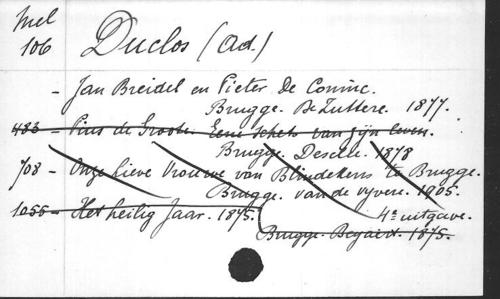 Mel
106 Duclos (Ad.)
- Jan Breidel en Pieter De Coninc.
Brugge. De Zuttere. 1877.
483 - Pius de Groote. Eene schets van zijn leven.
Brugge. Desclée. 1878
708 - Onze Lieve Vrouwe van Blindekens te Brugge.
Brugge. van de vyvere. 1905.
1055 - Het heilig Jaar. 1875. 4e uitgave.
Brugge. Beyaert. 1875.